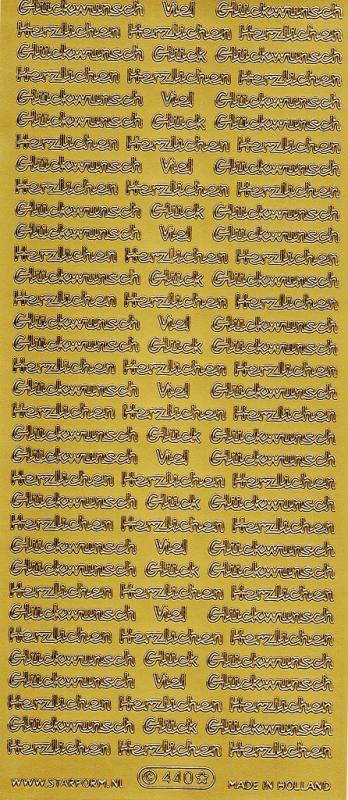 Glückwunsch Viel Glückwunsch
Herzlichen Herzlichen Herzlichen
Glückwunsch Glück Glückwunsch
Herzlichen Herzlichen Herzlichen
Glückwunsch Viel Glückwunsch
Glückwunsch Glück Glückwunsch
Herzlichen Herzlichen Herzlichen
Glückwunsch Viel Glückwunsch
Herzlichen Herzlichen Herzlichen
Glückwunsch Glück Glückwunsch
Glückwunsch Viel Glückwunsch
Herzlichen Herzlichen Herzlichen
Glückwunsch Glück Glückwunsch
Herzlichen Herzlichen Herzlichen
Glückwunsch Viel Glückwunsch
Glückwunsch Glück Glückwunsch
Herzlichen Herzlichen Herzlichen
Glückwunsch Viel Glückwunsch
Herzlichen Herzlichen Herzlichen
Glückwunsch Glück Glückwunsch
Glückwunsch Viel Glückwunsch
Herzlichen Herzlichen Herzlichen
Glückwunsch Glück Glückwunsch
Herzlichen Herzlichen Herzlichen
Glückwunsch Viel Glückwunsch
Glückwunsch Glück Glückwunsch
Herzlichen Herzlichen Herzlichen
Glückwunsch Viel Glückwunsch
Herzlichen Herzlichen Herzlichen
Glückwunsch Glück Glückwunsch
Glückwunsch Viel Glückwunsch
Herzlichen Herzlichen Herzlichen
Glückwunsch Glück Glückwunsch
Herzlichen Herzlichen Herzlichen
WWW.STARFORM.NL © 440☆ MADE IN HOLLAND